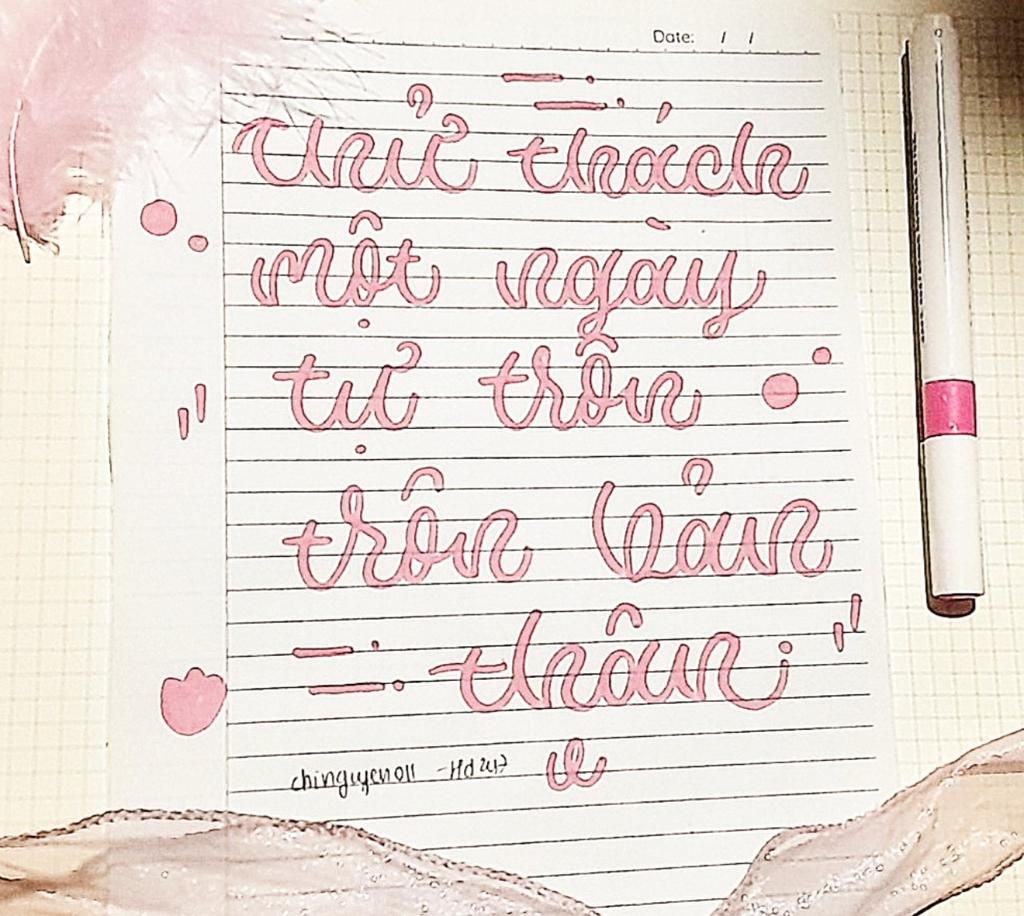 Date: / /
thử thách
một ngày
tự trôn
trôn bản
thân
chinguyen011 -Hd247